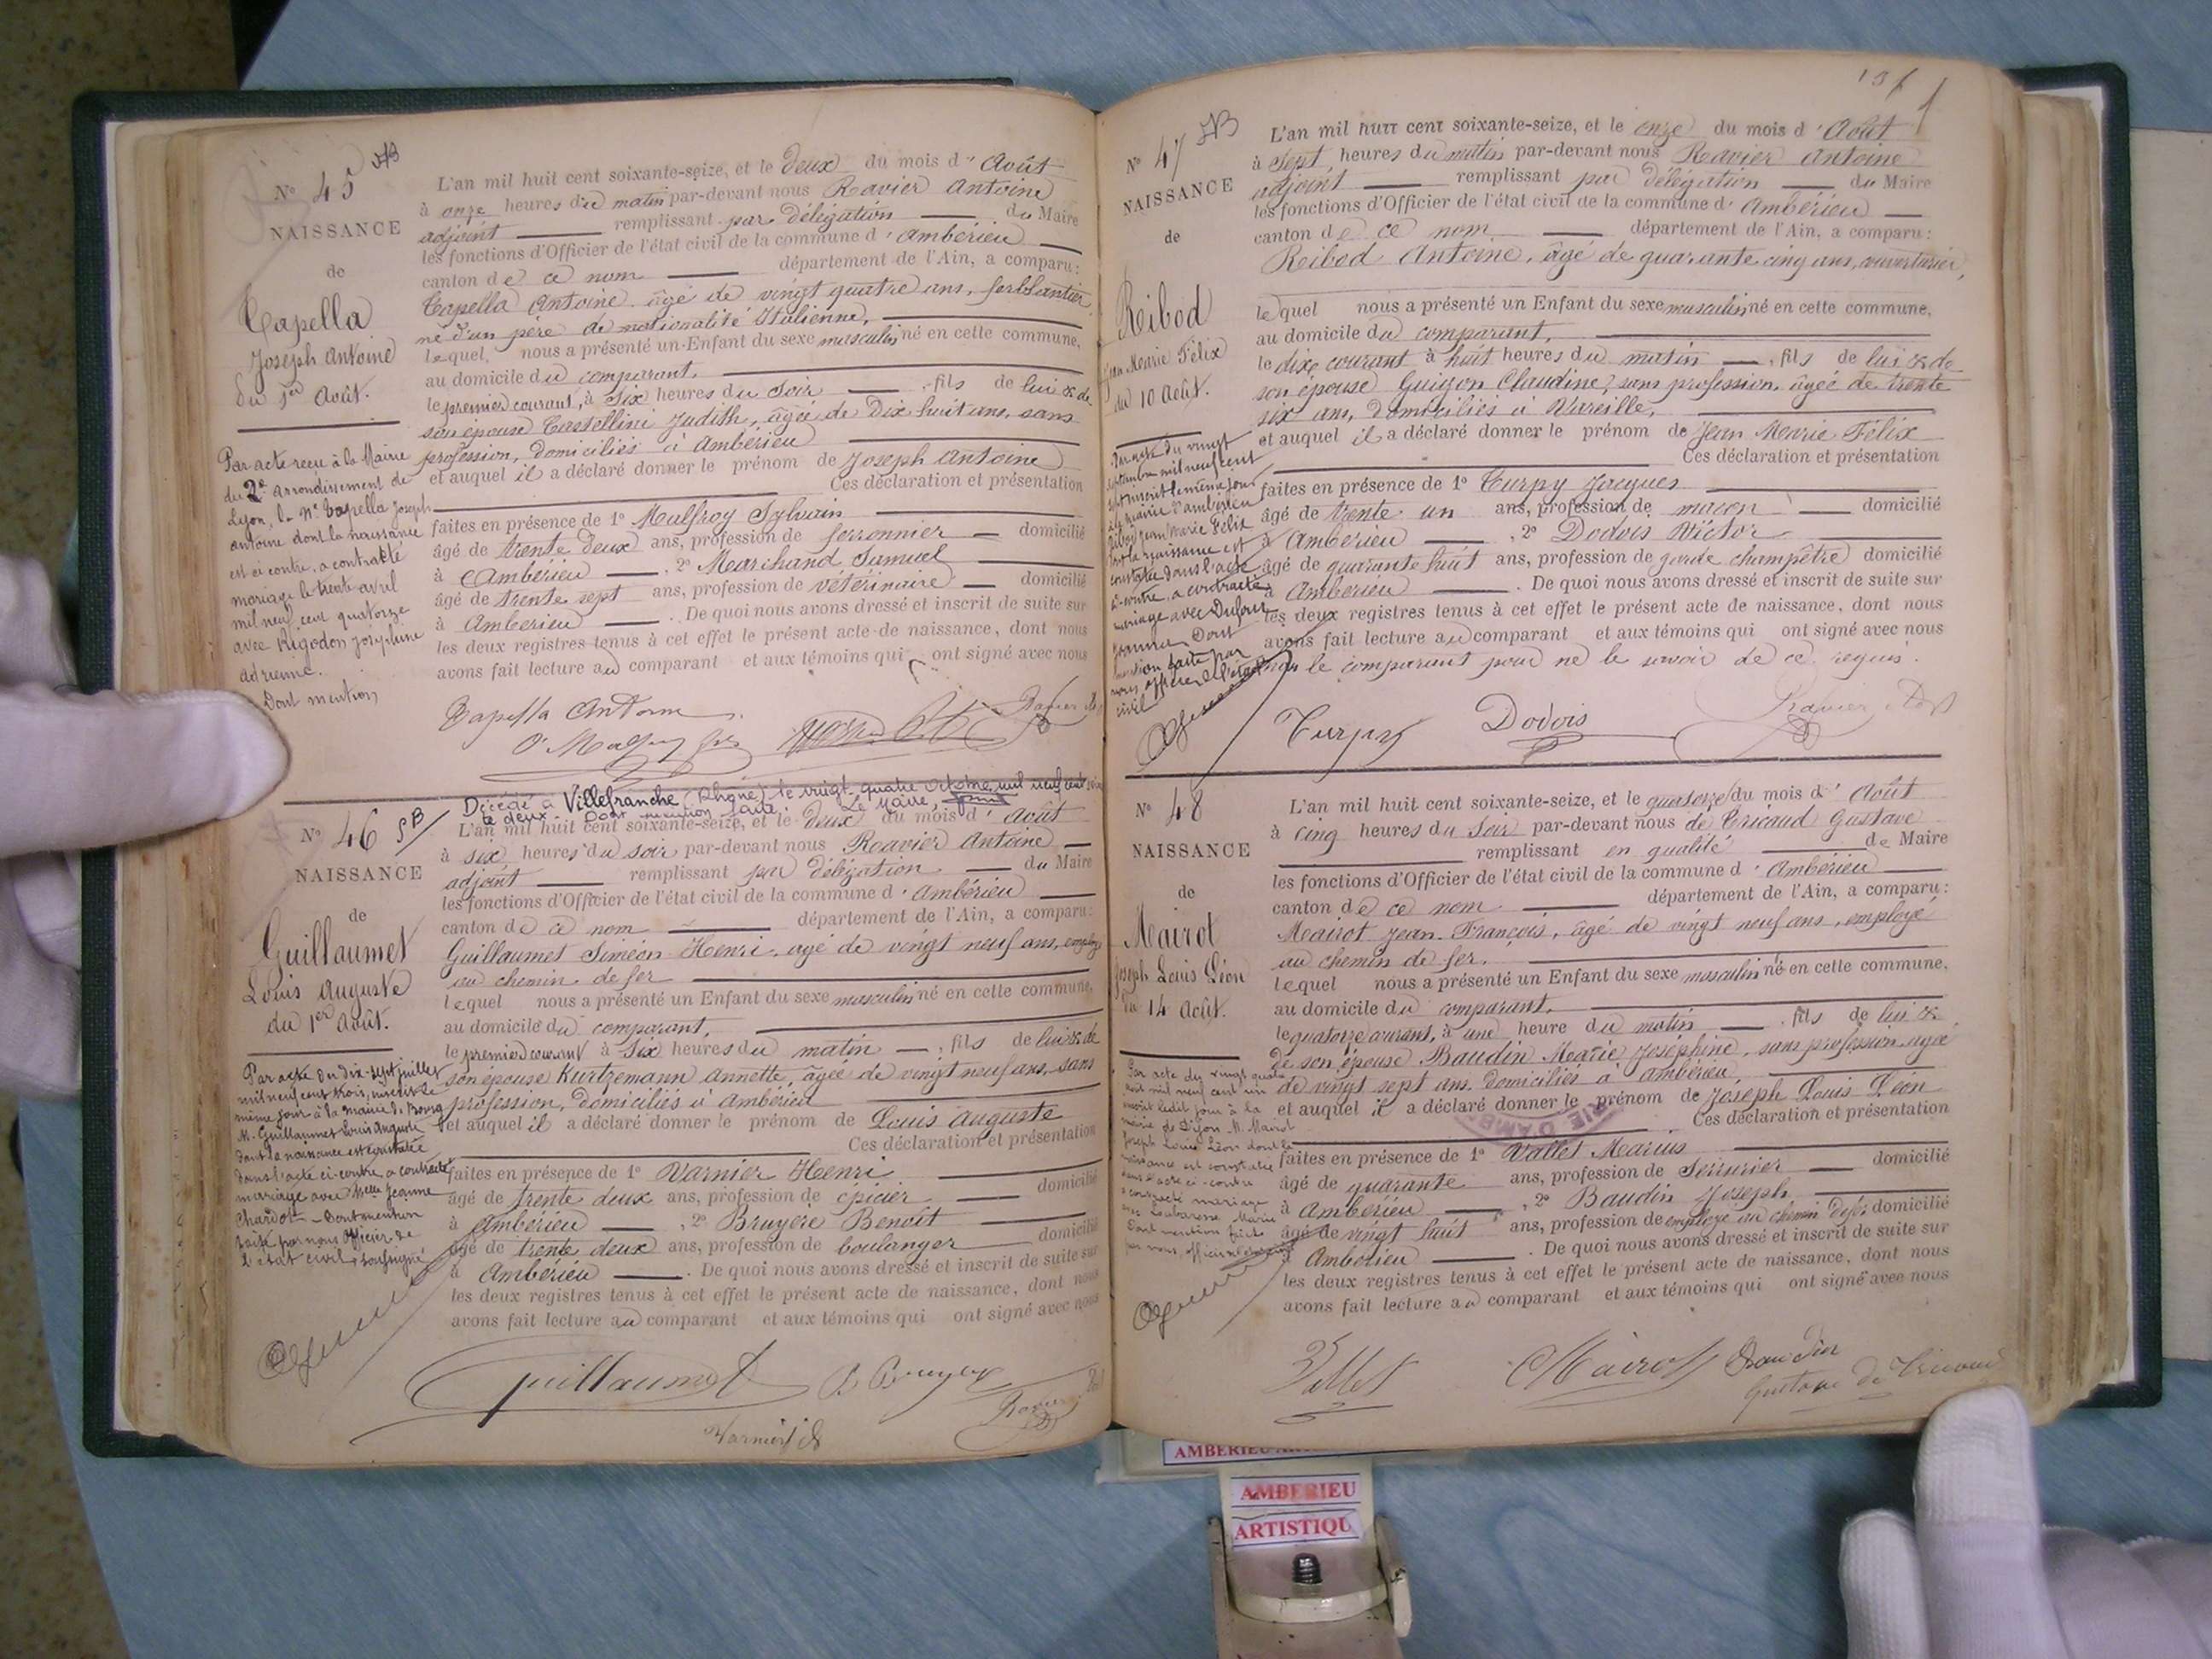 N° 45
NAISSANCE
de
Capella
Joseph Antoine
du 1er Août.
Par acte reçu à la Mairie
du 2e arrondissement de
Lyon, le Né Capella Joseph
antoine dont la naissance
est ci contre, a contracté
mariage le trente avril
mil neuf cent quatorze
avec Rigodon Joséphine
adrienne.
Dont mention
L'an mil huit cent soixante-seize, et le deux du mois d'Août
à onze heures du matin par-devant nous Ravier Antoine
adjoint remplissant par délégation du Maire
les fonctions d'Officier de l'état civil de la commune d'Ambérieu
canton de ce nom département de l'Ain, a comparu:
Capella Antoine âgé de vingt quatre ans, ferblantier
né d'un père de nationalité Italienne,
lequel, nous a présenté un Enfant du sexe masculin né en cette commune,
au domicile du comparant,
le premier courant, à Six heures du Soir, fils de lui & de
son épouse Castellini Judith, âgée de Dix huit ans, sans
profession, domiciliés à Ambérieu
et auquel il a déclaré donner le prénom de Joseph Antoine
Ces déclaration et présentation
faites en présence de 1° Malfroy Sylvain
âgé de trente deux ans, profession de ferronnier domicilié
à Ambérieu, 2° Marchand Samuel
âgé de trente sept ans, profession de vétérinaire domicilié
à Ambérieu. De quoi nous avons dressé et inscrit de suite sur
les deux registres tenus à cet effet le présent acte de naissance, dont nous
avons fait lecture au comparant et aux témoins qui ont signé avec nous
Capella Antoine
Décédé à Villefranche (Rhône) le vingt quatre octobre mil neuf cent
le deux. Dont mention faite. Le Maire,
N° 46
NAISSANCE
de
Guillaumet
Louis Auguste
du 1er Août.
Par acte du dix-sept juillet
mil neuf cent trois, inscrit le
même jour à la mairie de Bourg
M. Guillaumet Louis Auguste
dont la naissance est constatée
dans l'acte ci-contre a contracté
mariage avec Melle Jeanne
Chardot - Dont mention
faite par nous Officier de
l'état civil soussigné
L'an mil huit cent soixante-seize, et le deux du mois d'Août
à six heures du soir par-devant nous Ravier Antoine
adjoint remplissant par délégation du Maire
les fonctions d'Officier de l'état civil de la commune d'Ambérieu
canton de ce nom département de l'Ain, a comparu:
Guillaumet Siméon Henri, âgé de vingt neuf ans, employé
au chemin de fer
lequel nous a présenté un Enfant du sexe masculin né en cette commune,
au domicile du comparant,
le premier courant à Six heures du matin, fils de lui & de
son épouse Kurtzemann Annette, âgée de vingt neuf ans, sans
profession, domiciliés à Ambérieu
et auquel il a déclaré donner le prénom de Louis Auguste
Ces déclaration et présentation
faites en présence de 1° Varnier Henri
âgé de trente deux ans, profession de épicier domicilié
à Ambérieu, 2° Bruyère Benoît
âgé de trente deux ans, profession de boulanger domicilié
à Ambérieu. De quoi nous avons dressé et inscrit de suite sur
les deux registres tenus à cet effet le présent acte de naissance, dont nous
avons fait lecture au comparant et aux témoins qui ont signé avec nous
Guillaumet B Bruyère
Varnier
N° 47
NAISSANCE
de
Reibod
Jean Marie Félix
du 10 Août.
Par acte du vingt
septembre mil neuf cent
sept inscrit le même jour
à la mairie d'ambérieu
Reibod Jean Marie Félix
dont la naissance est
constatée dans l'acte
ci-contre, a contracté
mariage avec Dufour
Jeanne. Dont
mention faite par
nous officier de l'état
civil
L'an mil huit cent soixante-seize, et le onze du mois d'Août
à Sept heures du matin par-devant nous Ravier Antoine
adjoint remplissant par délégation du Maire
les fonctions d'Officier de l'état civil de la commune d'Ambérieu
canton de ce nom département de l'Ain, a comparu:
Reibod Antoine, âgé de quarante cinq ans, couverturier,
lequel nous a présenté un Enfant du sexe masculin né en cette commune,
au domicile du comparant,
le dix courant à huit heures du matin, fils de lui & de
son épouse Guigon Claudine, sans profession, âgée de trente
six ans, domiciliés à Vareille,
et auquel il a déclaré donner le prénom de Jean Marie Félix
Ces déclaration et présentation
faites en présence de 1° Turpy Jacques
âgé de trente un ans, profession de maçon domicilié
à Ambérieu, 2° Dodois Victor
âgé de quarante huit ans, profession de garde champêtre domicilié
à Ambérieu. De quoi nous avons dressé et inscrit de suite sur
les deux registres tenus à cet effet le présent acte de naissance, dont nous
avons fait lecture au comparant et aux témoins qui ont signé avec nous
non le comparant pour ne le savoir de ce requis.
Turpy Dodois Ravier
N° 48
NAISSANCE
de
Mairot
Joseph Louis Léon
du 14 Août.
Par acte du vingt quatre
août mil neuf cent un
inscrit ledit jour à la
mairie de Dijon M. Mairot
Joseph Louis Léon dont la
naissance est constatée
dans l'acte ci-contre
a contracté mariage
avec Loubaresse Marie
Dont mention faite
par nous, officier de
L'an mil huit cent soixante-seize, et le quatorze du mois d'Août
à cinq heures du Soir par-devant nous de Tricaud Gustave
remplissant en qualité de Maire
les fonctions d'Officier de l'état civil de la commune d'Ambérieu
canton de ce nom département de l'Ain, a comparu:
Mairot Jean-François, âgé de vingt neuf ans, employé
au chemin de fer.
lequel nous a présenté un Enfant du sexe masculin né en cette commune,
au domicile du comparant,
le quatorze courant, à une heure du matin, fils de lui &
de son épouse Baudin Marie Joséphine, sans profession, âgée
de vingt sept ans, domiciliés à Ambérieu,
et auquel il a déclaré donner le prénom de Joseph Louis Léon
Ces déclaration et présentation
faites en présence de 1° Vallet Marius
âgé de quarante ans, profession de Serrurier domicilié
à Ambérieu, 2° Baudin Joseph
âgé de vingt huit ans, profession de employé au chemin de fer domicilié
à Ambérieu. De quoi nous avons dressé et inscrit de suite sur
les deux registres tenus à cet effet le présent acte de naissance, dont nous
avons fait lecture au comparant et aux témoins qui ont signé avec nous
Vallet Mairot Baudin
Gustave de Tricaud
AMBERIEU
AMBERIEU
ARTISTIQU